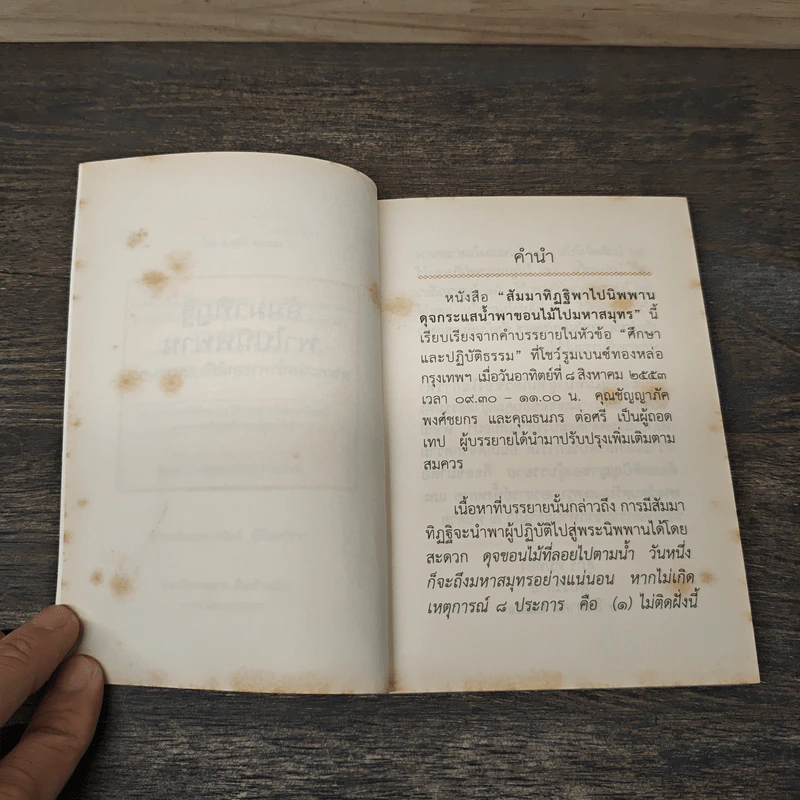 คำนำ
หนังสือ “สัมมาทิฏฐิพาไปนิพพาน
ดุจกระแสน้ำพาขอนไม้ไปมหาสมุทร” นี้
เรียบเรียงจากคำบรรยายในหัวข้อ “ศึกษา
และปฏิบัติธรรม” ที่โชว์รูมเบนซ์ทองหล่อ
กรุงเทพฯ เมื่อวันอาทิตย์ที่ ๘ สิงหาคม ๒๕๕๓
เวลา ๐๙.๓๐ – ๑๑.๐๐ น. คุณชัญญาภัค
พงศ์ชยกร และคุณธนภร ต่อศรี เป็นผู้ถอด
เทป ผู้บรรยายได้นำมาปรับปรุงเพิ่มเติมตาม
สมควร
เนื้อหาที่บรรยายนั้นกล่าวถึง การมีสัมมา
ทิฏฐิจะนำพาผู้ปฏิบัติไปสู่พระนิพพานได้โดย
สะดวก ดุจขอนไม้ที่ลอยไปตามน้ำ วันหนึ่ง
ก็จะถึงมหาสมุทรอย่างแน่นอน หากไม่เกิด
เหตุการณ์ ๘ ประการ คือ (๑) ไม่ติดฝั่งนี้